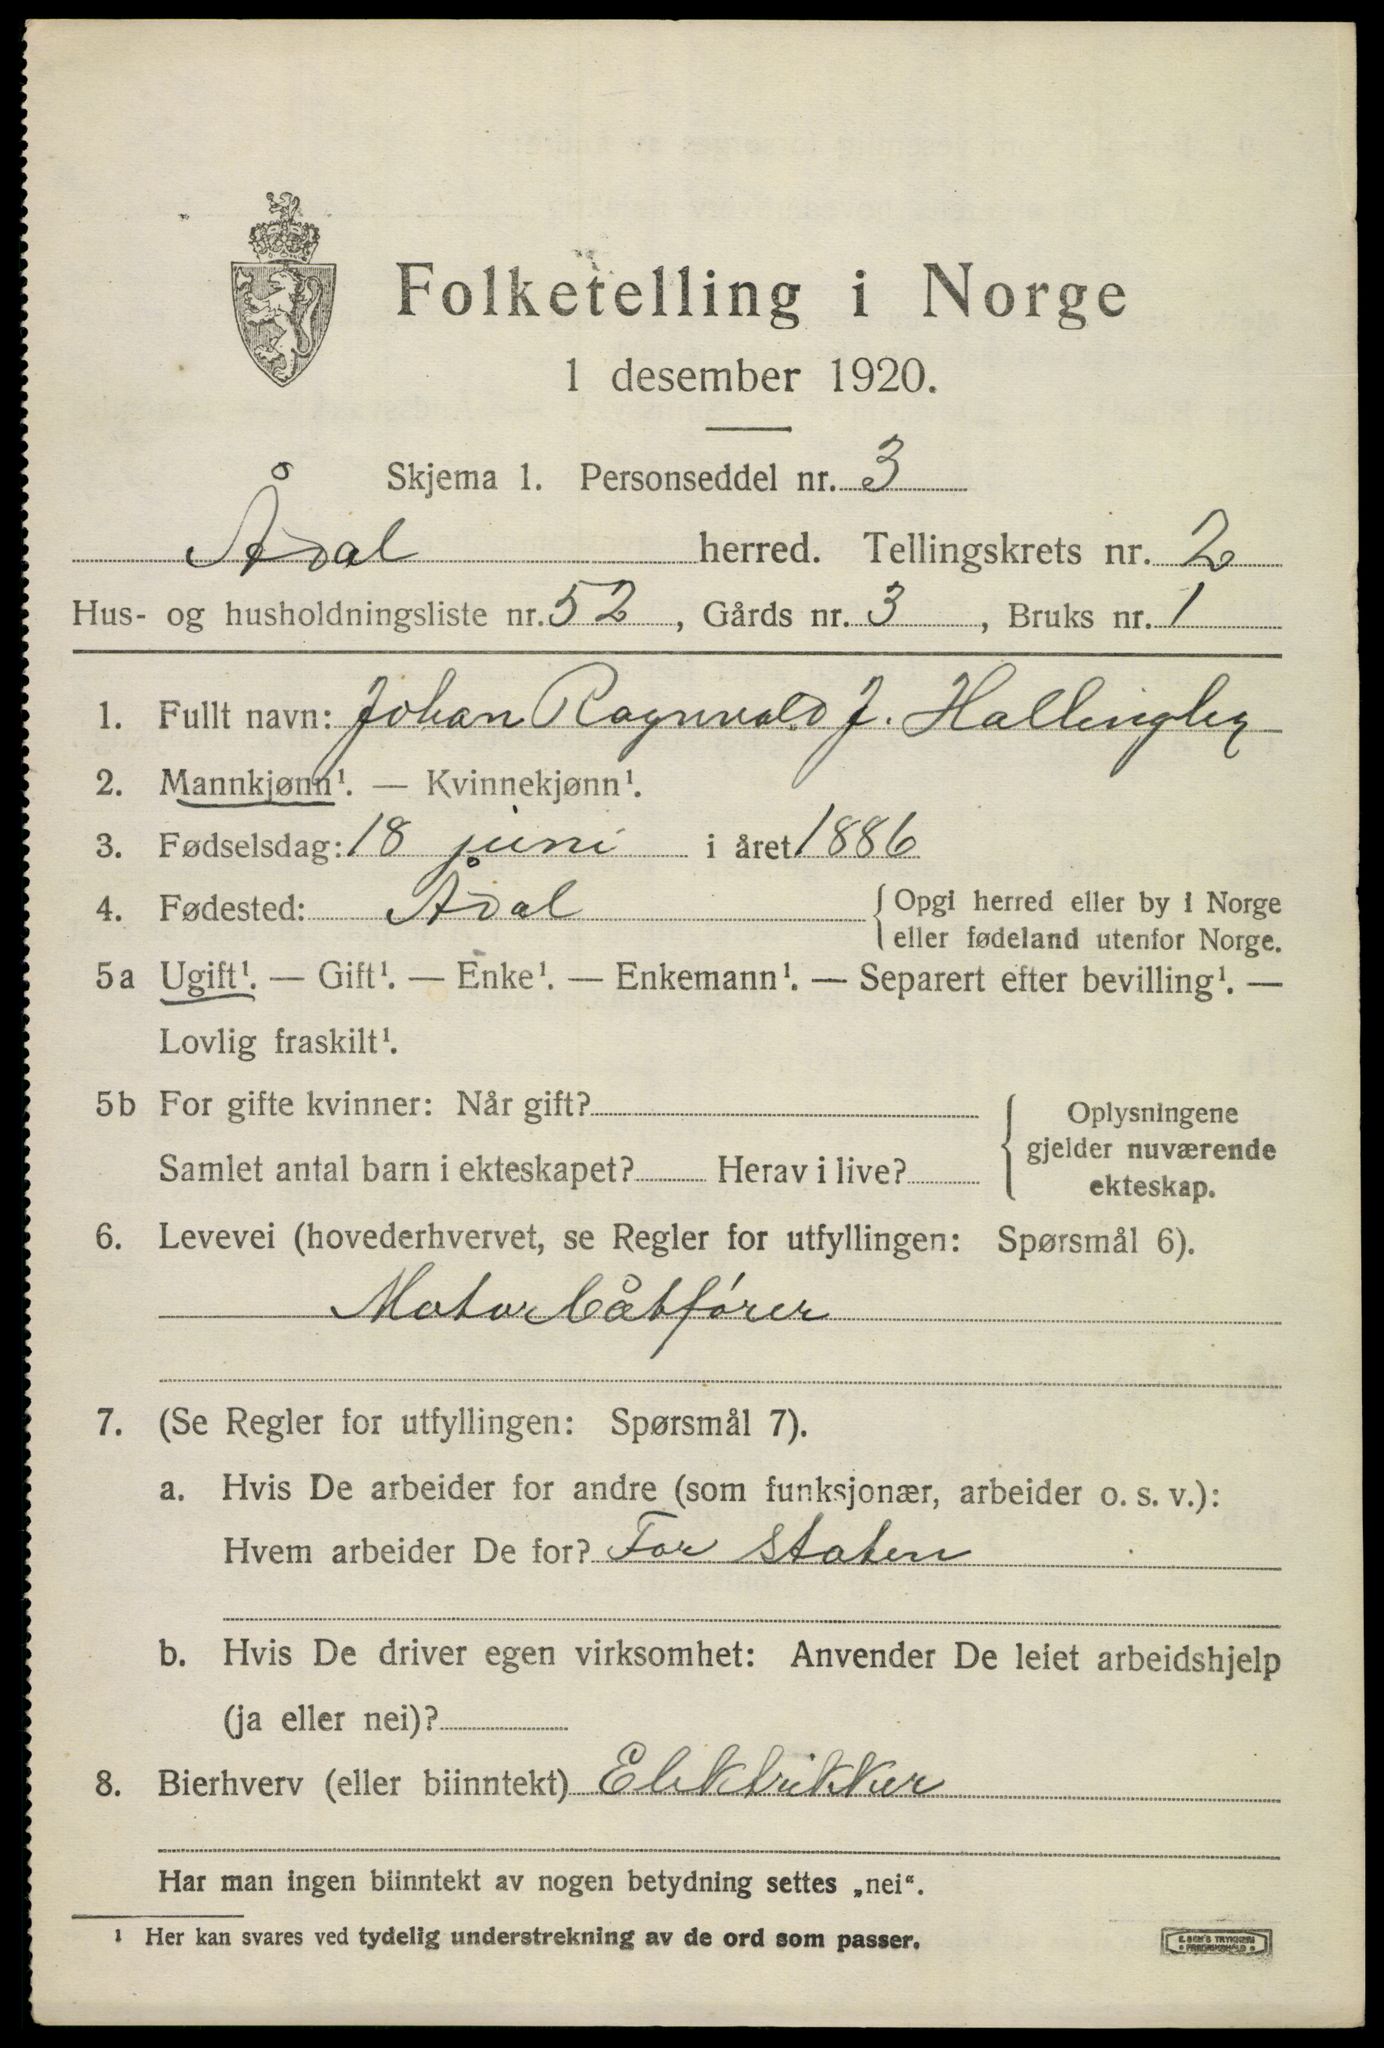 Folketelling i Norge
1 desember 1920.
Skjema 1. Personseddel nr. 3
Ådal herred. Tellingskrets nr. 2
Hus- og husholdningsliste nr. 52, Gårds nr. 3, Bruks nr. 1
1. Fullt navn: Johan Ragnvald J. Hallingby
2. Mannkjønn¹. — Kvinnekjønn¹.
3. Fødselsdag: 18 juni i året 1886
4. Fødested: Ådal {Opgi herred eller by i Norge
eller fødeland utenfor Norge.
5a Ugift¹. — Gift¹. — Enke¹. — Enkemann¹. — Separert efter bevilling¹. —
Lovlig fraskilt¹.
5b For gifte kvinner: Når gift?
Samlet antal barn i ekteskapet? Herav i live?
Oplysningene
gjelder nuværende
ekteskap.
6. Levevei (hovederhvervet, se Regler for utfyllingen: Spørsmål 6).
Motorbåtfører
7. (Se Regler for utfyllingen: Spørsmål 7).
a. Hvis De arbeider for andre (som funksjonær, arbeider o. s. v.):
Hvem arbeider De for? For staten
b. Hvis De driver egen virksomhet: Anvender De leiet arbeidshjelp
(ja eller nei)?
8. Bierhverv (eller biinntekt) Elektrikker
Har man ingen biinntekt av nogen betydning settes „nei“.
¹ Her kan svares ved tydelig understrekning av de ord som passer.